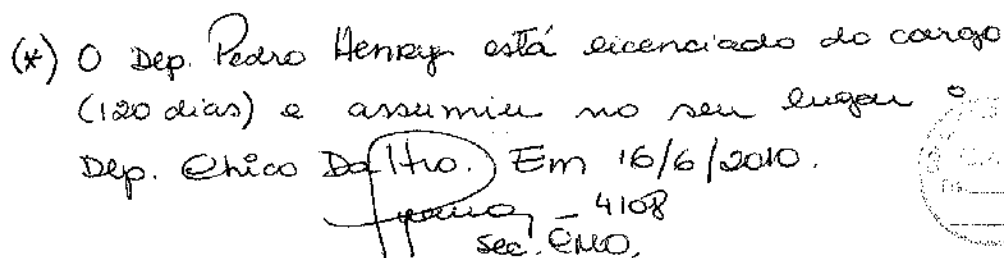 (*) O Dep. Pedro Henry está licenciado do cargo
(120 dias) e assumiu no seu lugar o
Dep. Chico Daltro. Em 16/6/2010.
– 4108
Sec. CMO,